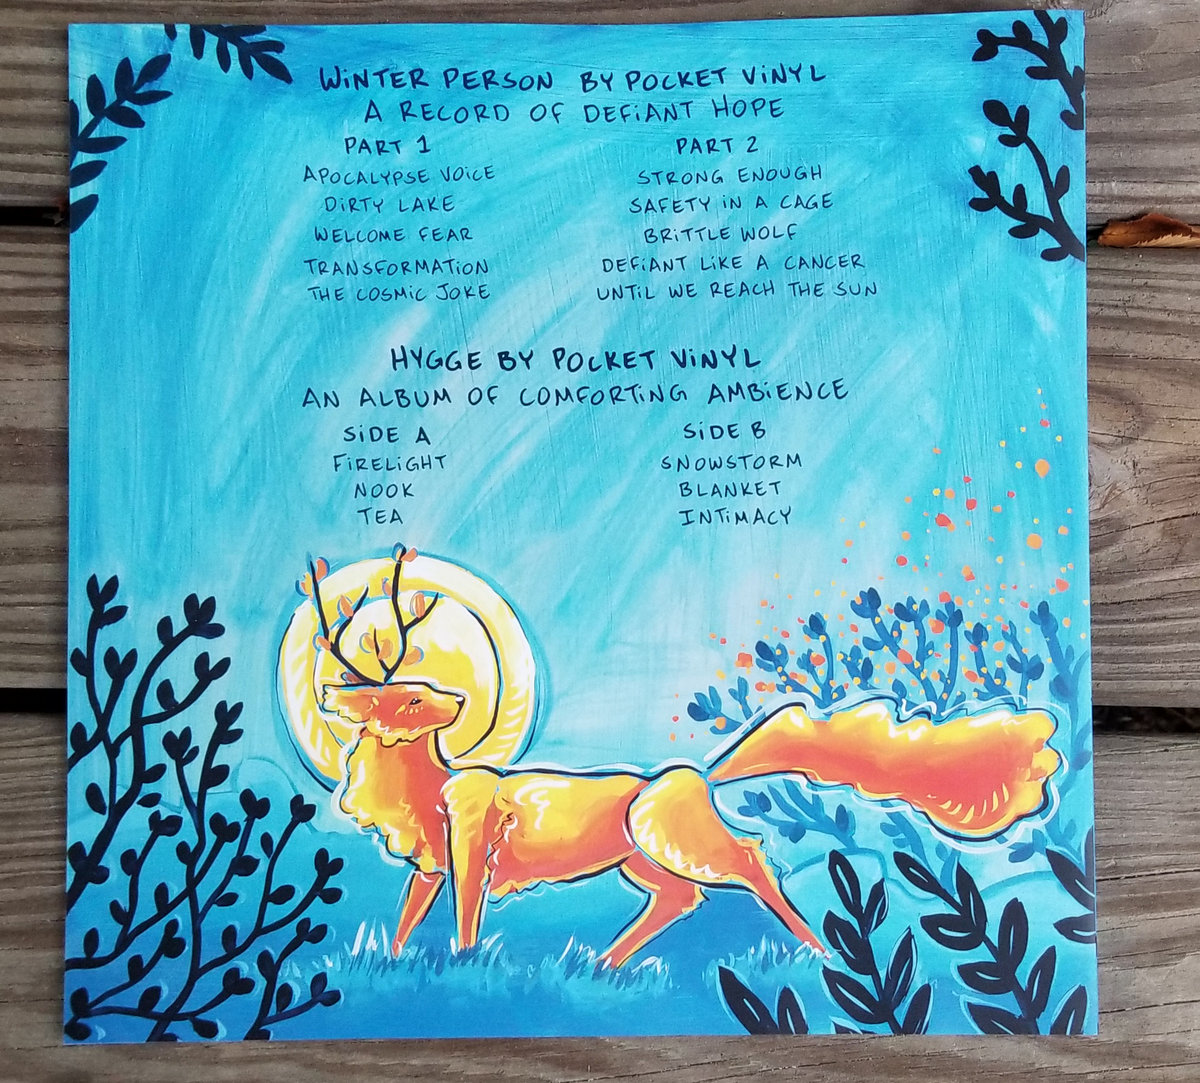 WINTER PERSON BY POCKET VINYL
A RECORD OF DEFIANT HOPE
PART 1
APOCALYPSE VOICE
DIRTY LAKE
WELCOME FEAR
TRANSFORMATION
THE COSMIC JOKE
PART 2
STRONG ENOUGH
SAFETY IN A CAGE
BRITTLE WOLF
DEFIANT LIKE A CANCER
UNTIL WE REACH THE SUN
HYGGE BY POCKET VINYL
AN ALBUM OF COMFORTING AMBIENCE
SIDE A
FIRELIGHT
NOOK
TEA
SIDE B
SNOWSTORM
BLANKET
INTIMACY